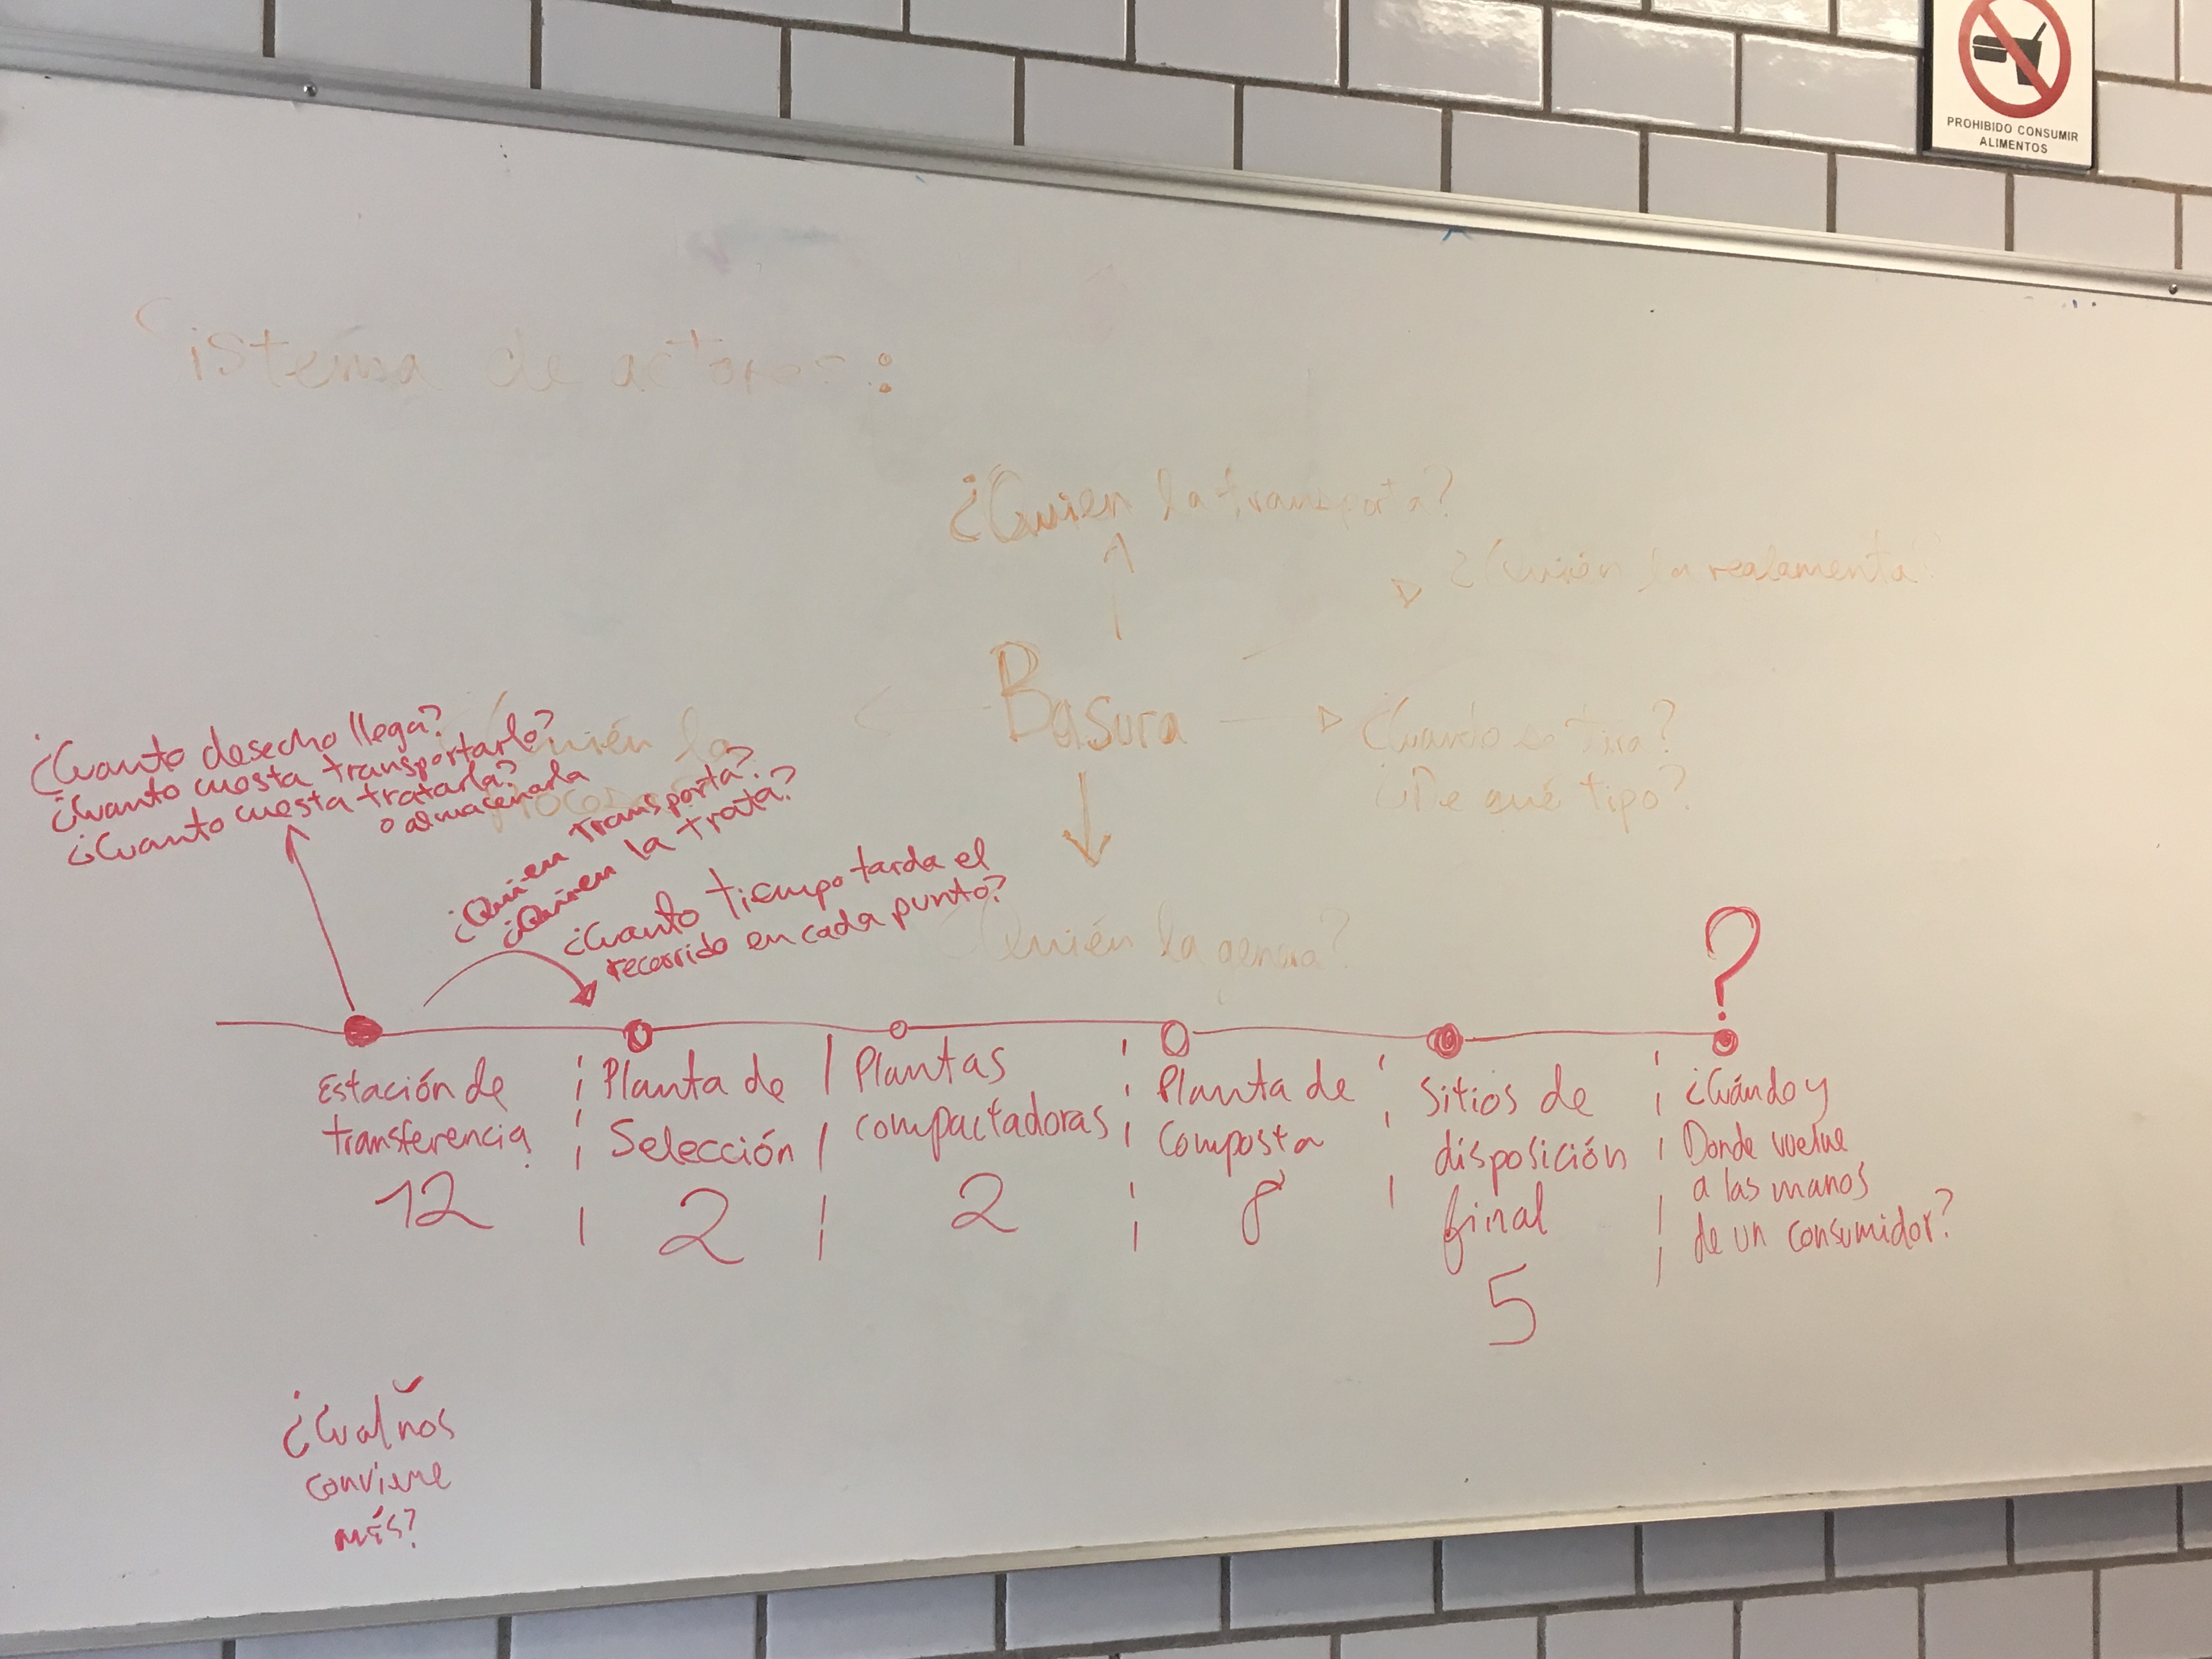 PROHIBIDO CONSUMIR
ALIMENTOS
Sistema de actores:
¿Quien la transporta?
¿Quién la reglamenta?
Basura
¿Cuando se tira?
¿De qué tipo?
¿Quién la
¿Quién la genera?
¿Cuanto desecho llega?
¿Cuanto cuesta transportarlo?
¿Cuanto cuesta tratarla?
o almacenarla
¿Quien transporta?
¿Quien la trata?
¿Cuanto tiempo tarda el
recorrido en cada punto?
?
Estación de
transferencia
12
Planta de
Selección
2
Plantas
compactadoras
2
Planta de
composta
8
Sitios de
disposición
final
5
¿Cuándo y
Donde vuelve
a las manos
de un consumidor?
¿Cual nos
conviene
más?